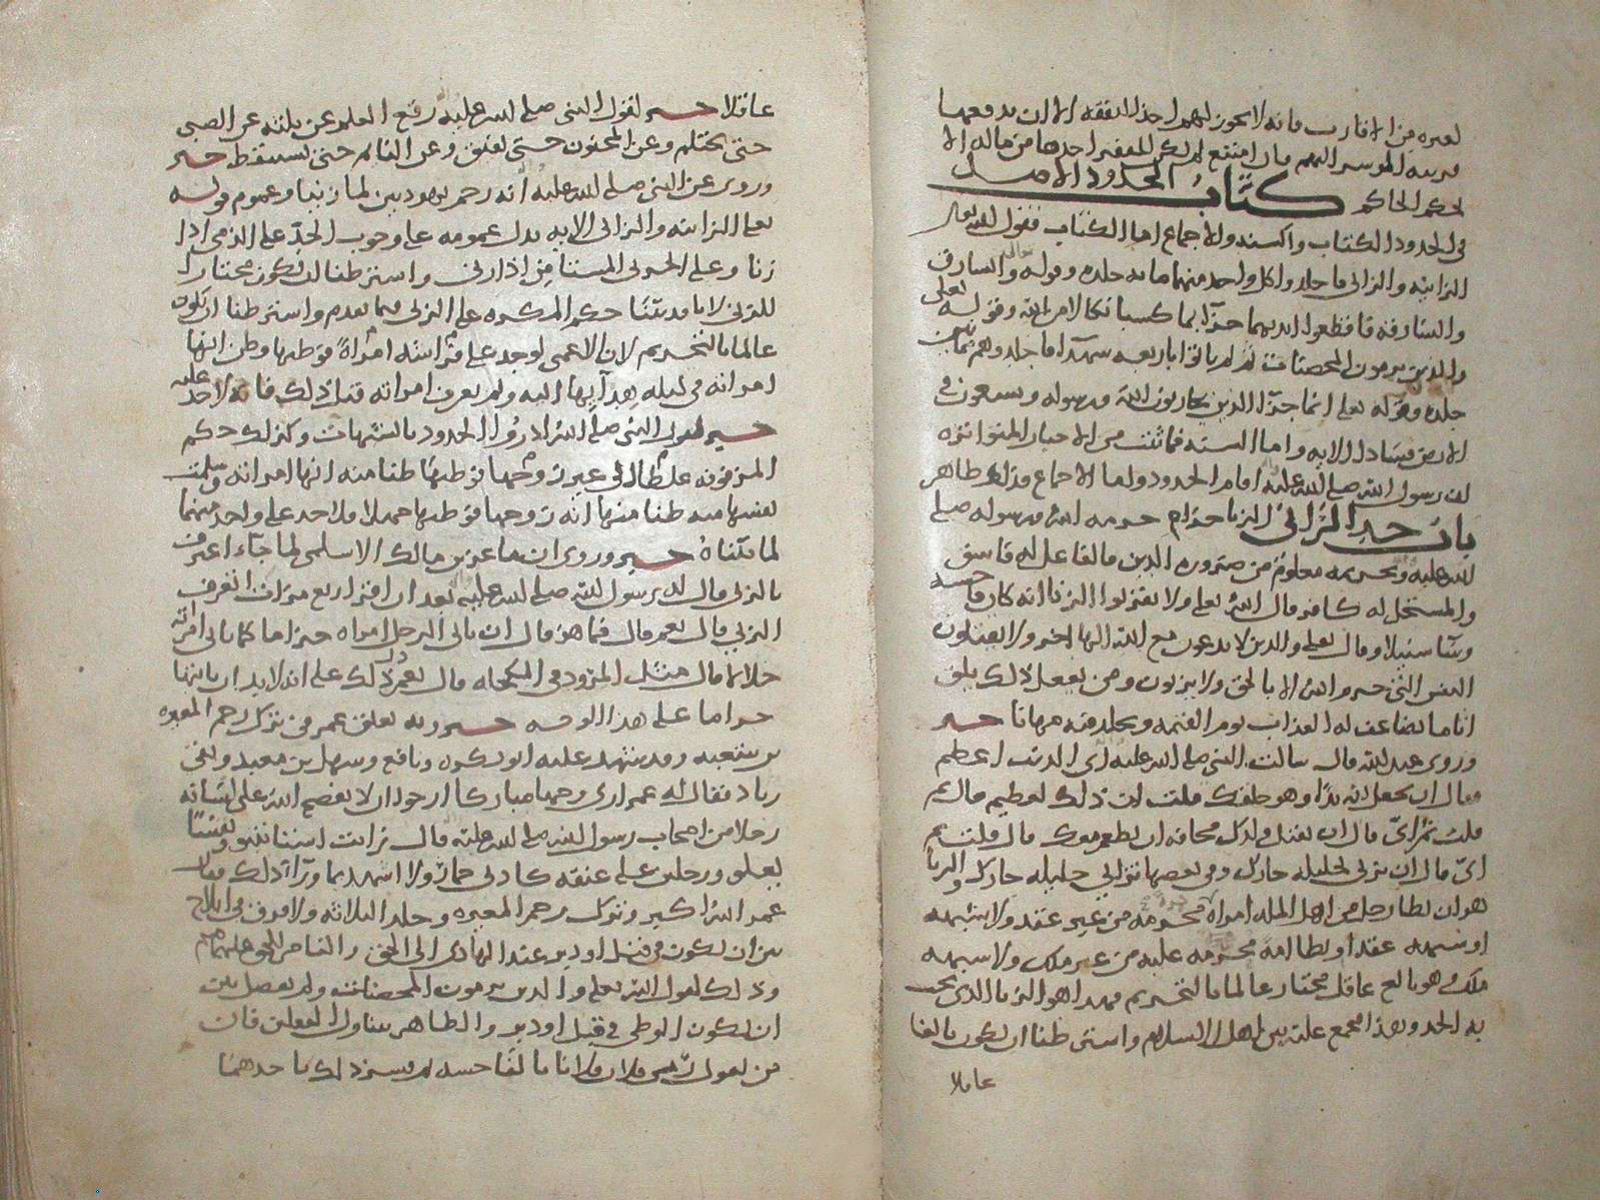 لغيره من الاقارب فانه لا يجوز لهم اخذ النفقه الا ان يدفعها
قريبه الموسر اليهم فان امتنع لم يكن للفقير اخذها من ماله الا
لحكم الحاكم كتاب الحدود الاصل
فى الحدود الكتاب والسنه والاجماع اما الكتاب فقول الله تعالى
الزانيه والزانى فاجلدوا كل واحد منهما مايه جلده وقوله تعالى والسارق
والسارقه فاقطعوا ايديهما جزآ بما كسبا نكالا من الله وقوله تعالى
والذين يرمون المحصنات ثم لم ياتوا باربعه شهدآ فاجلدوهم ثمانين
جلده وقوله تعلى انما جزآ الذين يحاربون الله ورسوله ويسعون فى
الارض فسادا الايه واما السنه فما ثبت من الاخبار المتواتره
ان رسول الله صلى الله عليه اقام الحدود واما الاجماع فذلك ظاهر
باب حد الزانى الزنا حرام حرمه الله ورسوله صلى
الله عليه وتحريمه معلوم من ضروره الدين فالفاعل له فاسق
والمستحل له كافر قال الله تعلى ولا تقربوا الزنا انه كان فاحشه
وسآ سبيلا وقال تعلى والذين لا يدعون مع الله الها اخر ولا يقتلون
النفس التى حرم الله الا بالحق ولا يزنون ومن يفعل ذلك يلق
اثاما يضاعف له العذاب يوم القيمه ويخلد فيه مهانا خبر
وروى عبد الله قال سالت النبى صلى الله عليه اى الذنب اعظم
فقال ان تجعل لله ندا وهو خلقك قلت ان ذلك لعظيم قال ثم
قلت ثم اىّ قال ان تقتل ولدك مخافه ان يطعم معك قال قلت ثم
اىّ قال ان تزنى بحليله جارك وفى بعضها تزانى حليله جارك والزنا
هو ان يطا رجل من اهل المله امراه محرمه من غير عقد ولا شبهه
او شبهه عقد او يطا امه محرمه عليه من غير ملك ولا شبهه
ملك وهو بالغ عاقل مختار عالما بالتحريم فهذا هو الزنا الذى يجب
به الحد وهذا مجمع عليه بين اهل الاسلام واشترطنا ان يكون بالغا
عاقلا
عاقلا خبر لقول النبى صلى الله عليه رفع القلم عن ثلثه عن الصبى
حتى يحتلم وعن المجنون حتى يفيق وعن النائم حتى يستيقظ خبر
وروى عن النبى صلى الله عليه انه رجم يهوديين لما زنيا وعموم قوله
تعلى الزانيه والزانى الايه يدل عمومه على وجوب الحد على الذمى اذا
زنا وعلى الحربى المستامن اذا زنى واشترطنا ان يكون مختارا
للزنى لانا قد بيّنا حكم المكره على الزنى فيما تقدم واشترطنا ان يكون
عالما بالتحريم لان الاعمى لو وجد على فراشه امراة فوطيها وظن انها
امراته فى ليله هدآيها اليه ولم يعرف امراته قبل ذلك فانه لا حد عليه
خبر لقول النبى صلى الله ادرؤا الحدود بالشبهات وكذلك حكم
المزفوفه غلطا الى غير زوجها فوطيها ظنا منه انها امراته وسلمت
نفسها منه ظنا منها انه زوجها فوطيها جهلا فلا حد على واحد منهما
لما بيّناه خبر وروى ان ماعز بن مالك الاسلمى لما جآء اعترف
بالزنى قال له رسول الله صلى الله عليه بعد ان اقر اربع مرات اتعرف
الزنى قال نعم قال فما هو قال ان ياتى الرجل امراه حراما كما ياتى امراته
حلالا قال مثل المرود فى المكحله قال نعم دل ذلك على انه لا بد ان ياتيها
حراما على هذا الوجه خبر وبه تعلق عمر فى ترك رجم المغيره
بن شعبه وقد شهد عليه ابو بكره ونافع وسهل بن معبد وبقى
زياد فقال له عمر ارى وجها مباركا ارجو ان لا يفضح الله على لسانه
رجلا من اصحاب رسول الله صلى الله عليه قال رايت استا تنبو ونفسا
يعلو ورجلين على عنقه كاذنى حمار ولا اشهد بما ورآ ذلك فقال
عمر الله اكبر وترك رجم المغيره وجلد الثلاثه ولا فرق فى ايلاج
بين ان يكون فى قبل او دبر عند الهادى الى الحق والناصر للحق عليهما السلم
وذلك لقول الله تعلى والذين يرمون المحصنات ولم يفصل بين
ان يكون الوطى فى قبل او دبر والظاهر يتناول الفعلين فان
من يقول رمى فلان فلانا بالفاحشه لم يفسر ذلك باحدهما